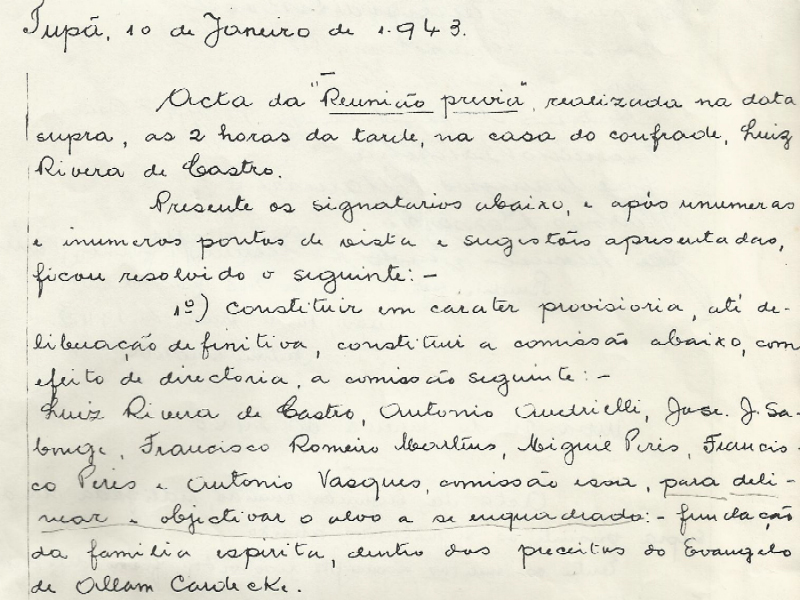 Tupã, 10 de Janeiro de 1.943.
Acta da "Reunicão previa", realizada na data
supra, as 2 horas da tarde, na casa do confrade, Luiz
Rivera de Castro.
Presente os signatarios abaixo, e após unumeras
e inumeros pontos de vista e sugestões apresentadas,
ficou resolvido o seguinte:-
1º) Constituir em carater provisioria, até de-
liberação definitiva, constitui a comissão abaixo, com
efeito de directoria, a comissão seguinte:-
Luiz Rivera de Castro, Antonio Audrielli, Jose. J. Sa-
Francisco Romeiro Martins, Miguie Peris, Francis-
co Peris e Antonio Vasques, comissão essa, para deli-
near e objectivar o alvo a se enquadrado:- fundação
da familia espirita, dentro das preceitas do Evangelo
de Allam Cardecke.